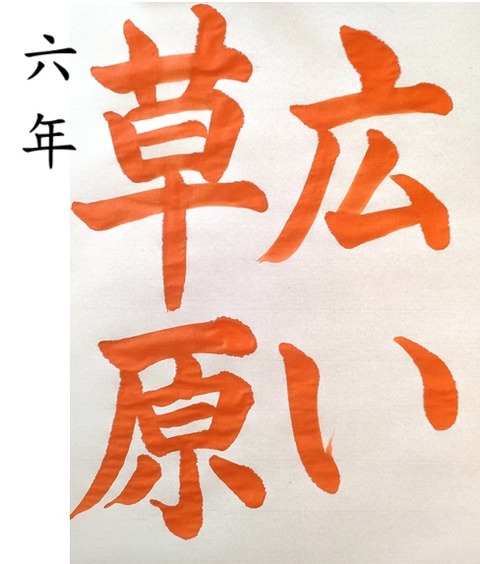 広い
草原
六年